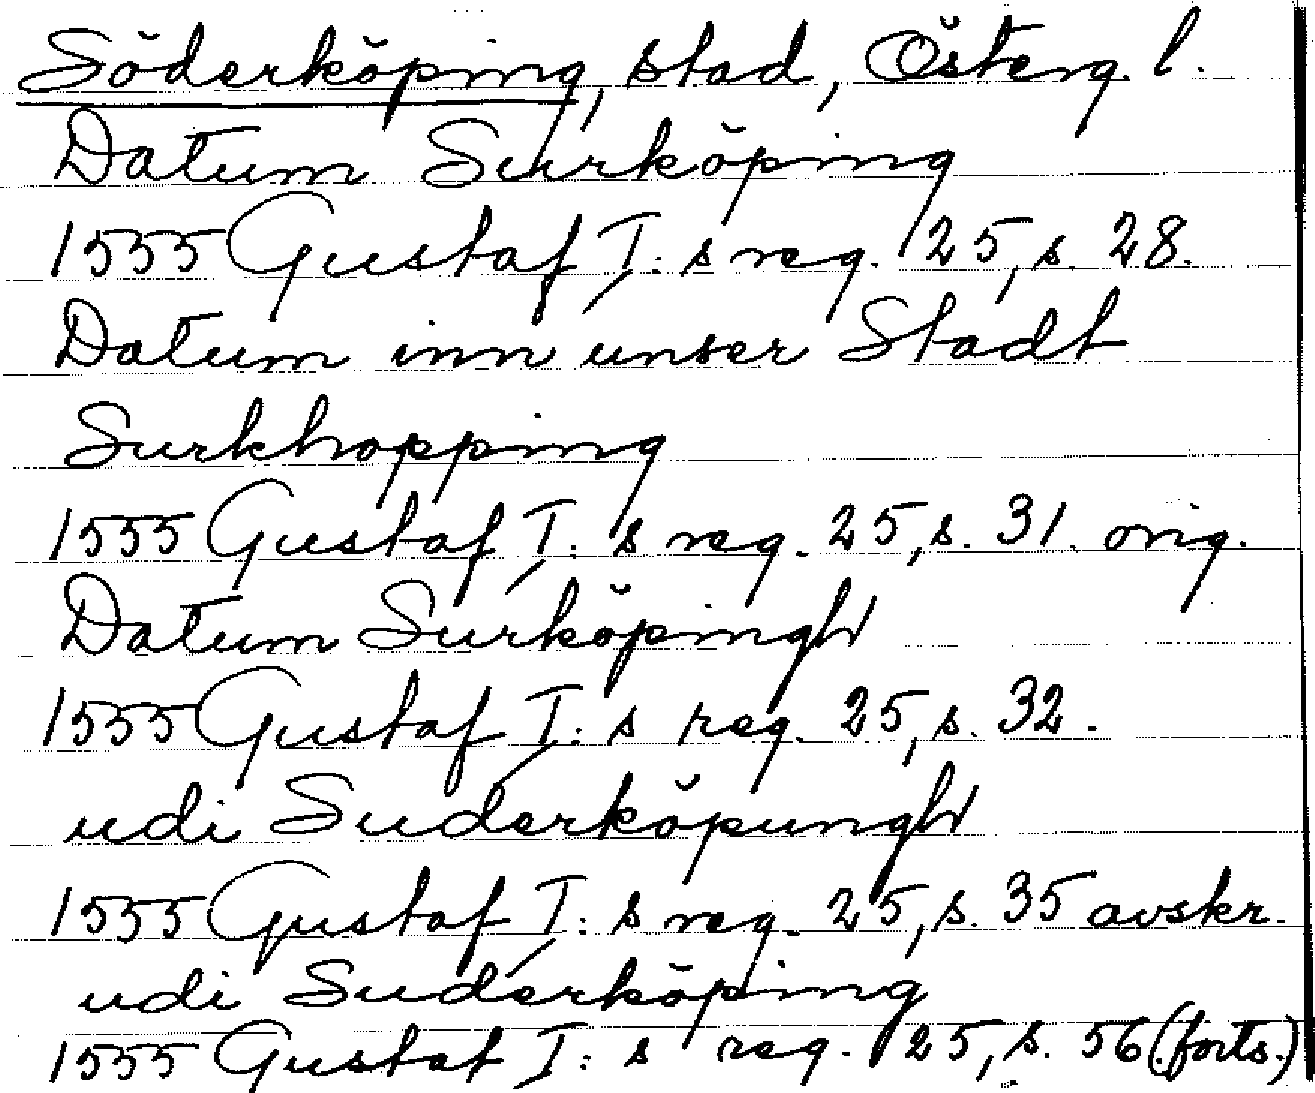 Söderköping, stad, Österg. l.
Datum Surköping
1555 Gustaf I: s reg. 25, s. 28.
Datum inn unser Stadt
Surkhopping
1555 Gustaf I: s reg. 25, s. 31. orig.
Datum Surköpingh
1555 Gustaf I: s reg. 25, s. 32.
udi Suderköpungh
1555 Gustaf I: s reg. 25, s. 35 avskr.
udi Suderköping
1555 Gustaf I: s reg. 25, s. 56 (forts.)